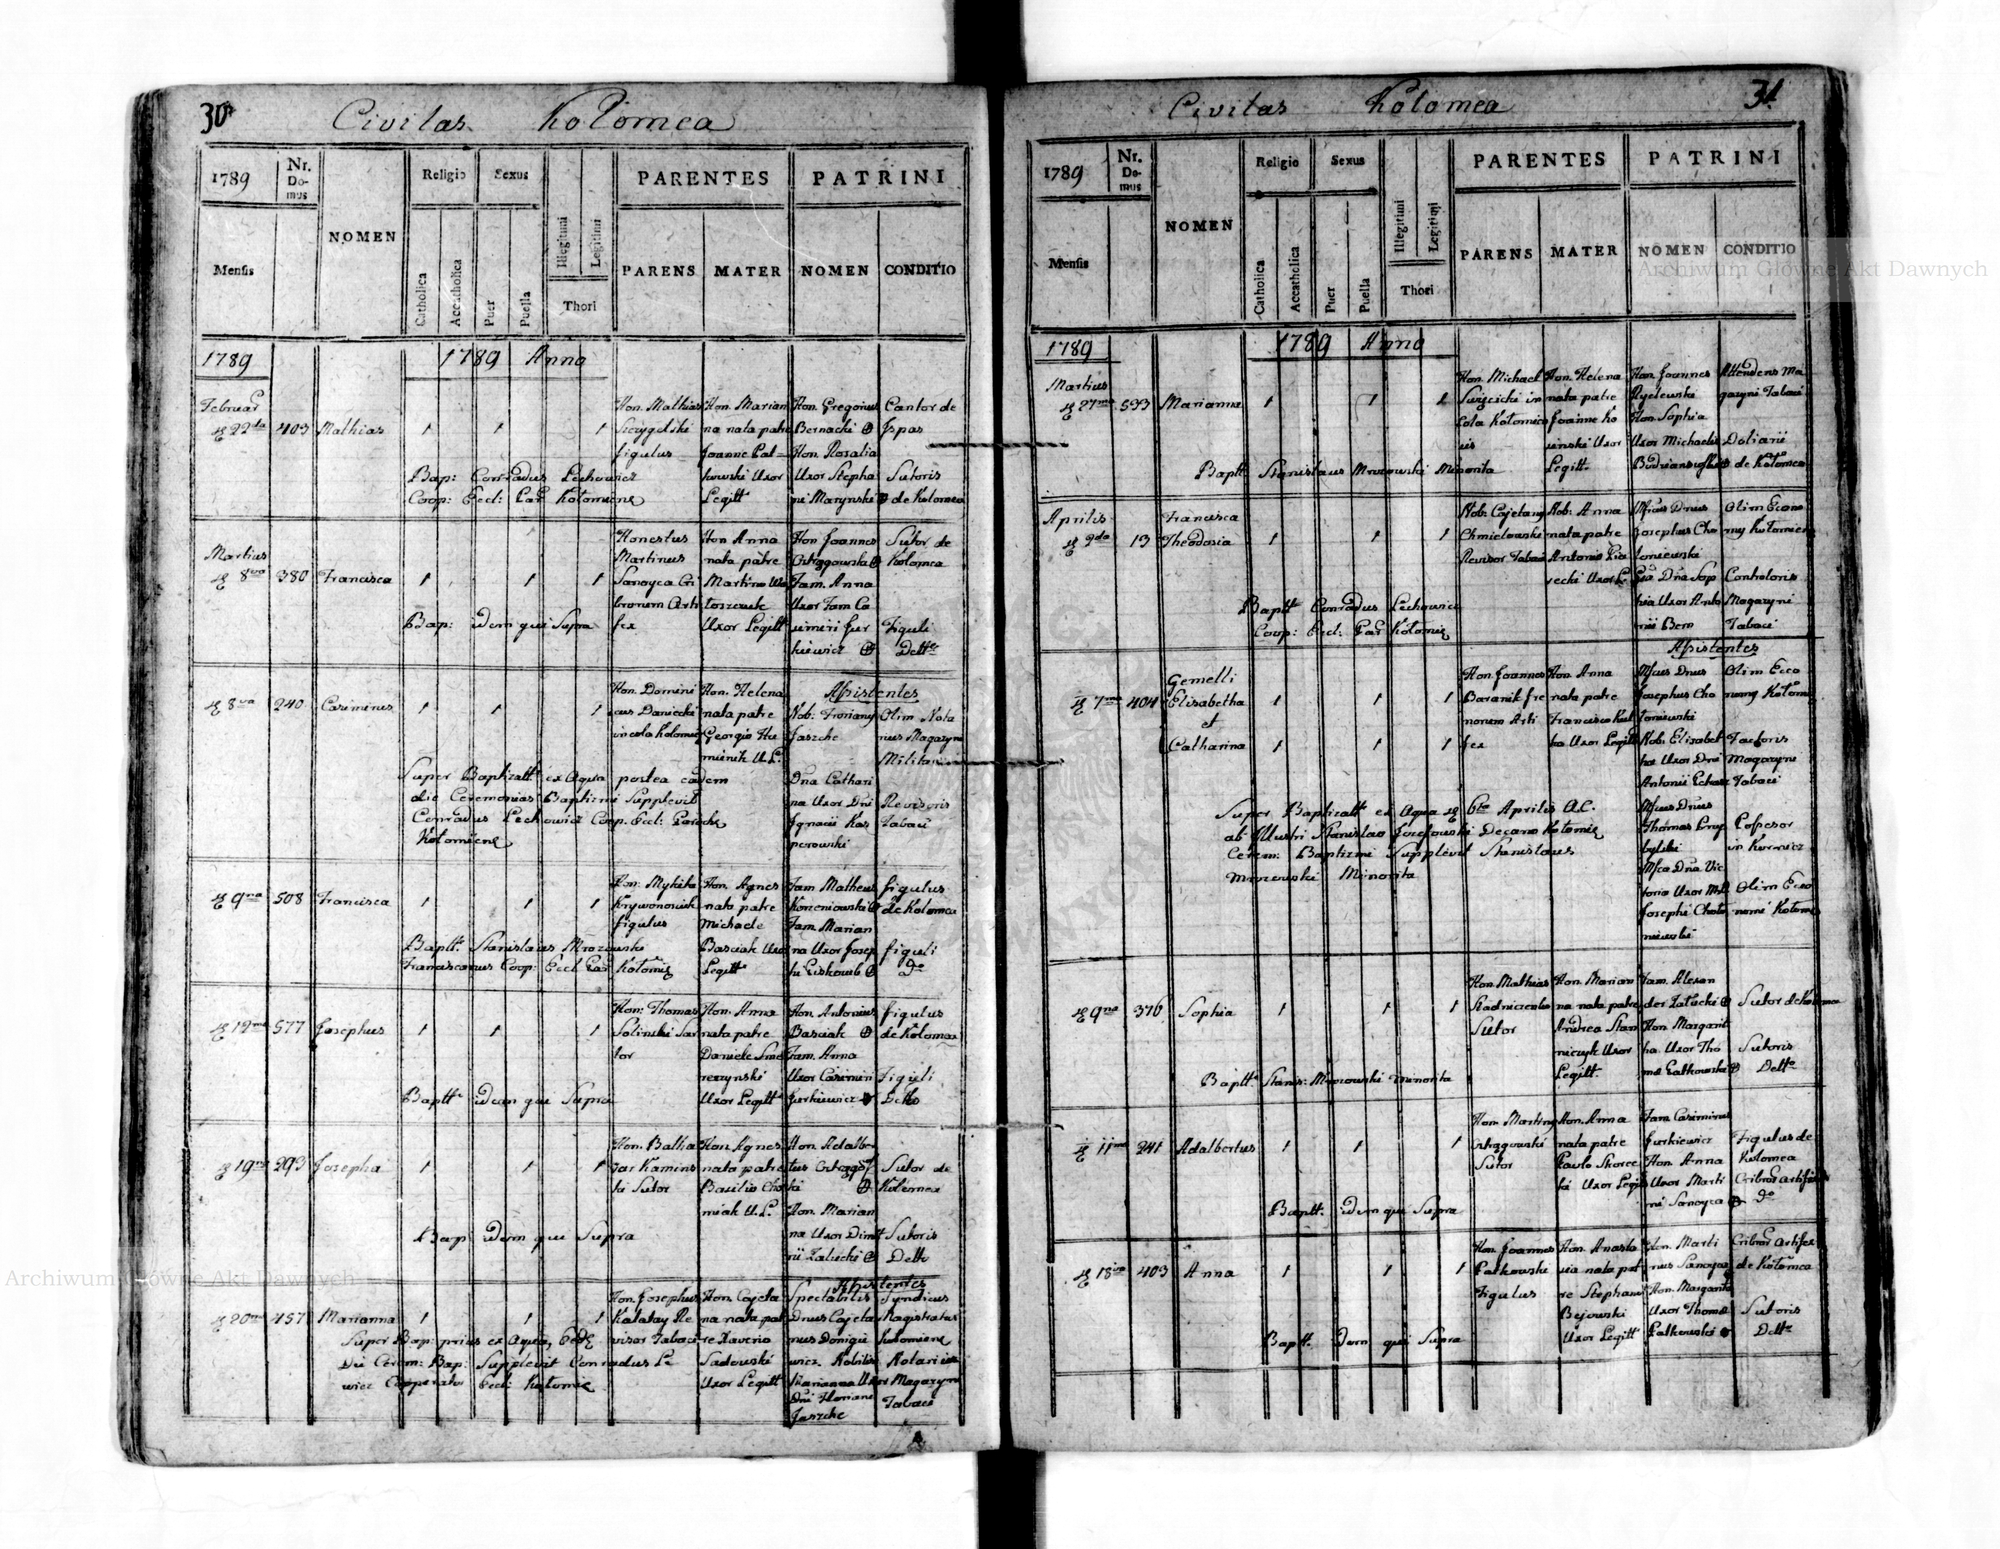 30
Civitas Kołomea
1789
Nr. Domus
NOMEN
Religio
Sexus
PARENTES
PATRINI
Mensis
Catholica
Accatholica
Puer
Puella
Illegitimi
Legitimi
Thori
PARENS
MATER
NOMEN
CONDITIO
1789
1789 Anno
Februar
22da 403 Mathias 1 1 1
Hon. Mathias
figulus
Hon. Marian
na nata patre
Joanne Pal=
kowski Uxor
Legitt
Hon. Gregorius
Bernacki
Hon. Rosalia
Uxor Stepha
ni Marynski
Cantor de
Ispas
Sutoris
de Kołomea
Bap: Conradus Lechowicz
Coop: Eccl: Par Kołomiens
Martius
8va 380 Francisca 1 1 1
Honestus
Martinus
Sanoyca Cri
brorum Arti
fex
Hon Anna
nata patre
Martino Wa
toszczuk
Uxor Legitt
Hon Joannes
Ostrzgowski
Fam. Anna
Uxor Fam Ca
simiri Jur
kiewicz
Sutor de
Kołomea
Figuli
Detto
Bap: idem qui Supra
8va 240 Casimirus 1 1 1
Hon. Domini
cus Daniecki
incola Kołomie
Hon. Helena
nata patre
Georgio Hu
mienik U.L.
Assistentes
Nob: Froriany
Jaszche
Olim Nota
rius Magazyn
Militar
Dna Cathari
na Uxor Dni
Ignacii Kas
perowski
Revisoris
Tabaci
Super Baptizatt ex Aqua postea eadem
die Ceremonias Baptizmi Supplevit
Conradus Lechowicz Coop. Eccl: Paroche
Kołomiene
9na 508 Francisca 1 1 1
Hon: Mykita
Krywonosiuk
figulus
Hon. Agnes
nata patre
Michaele
Basciak Uxor
Legitt
Fam Matheus
Korzeniowski
Fam. Marian
na Uxor Josep
hi
figulus
de Kołomea
figuli
do
Baptt. Stanislaus Mrozowski
Franciscanus Coop: Eccl Par Kołomie
12ma 577 Josephus 1 1 1
Hon: Thomas
Solinski Sar
tor
Hon. Anna
nata patre
Daniele Sme
reczynski
Uxor Legitt
Hon. Antonius
Basciak
Fam. Anna
Uxor Casimiri
Jurkiewicz
figulus
de Kołomea
Figuli
Baptt idem qui Supra
19na 293 Josepha 1 1 1
Hon. Baltha
zar Kamins
ki Sutor
Hon. Agnes
nata patre
Basilio Cho
miak U.L.
Hon. Adalber
tus Ostrzgows
ki
Hon. Marian
na Uxor Dimit
rii Zalucki
Sutor de
Kołomea
Sutoris
Detto
Bap idem qui Supra
20ma 457 Marianna 1 1 1
Hon. Josephus
Kałatay Re
visor Tabaci
Hon. Cajeta
na nata pat
re Xaverio
Sadowski
Uxor Legitt
Assistentes
Spectabilis
Dnus Cajeta
nus Donigie
wicz. Nobilis
Marianna Uxor
Dni Floriani
Jaszche
Syndicus
Magistratus
Kołomiene
Notarius
Magazyn
Tabaci
Super Bap: prius ex Aqua,
Dei Cerem: Bap: Supplevit Conradus Le
wicz Cooperator Eccl: Kołomie
31
Civitas Kołomea
1789
Nr. Domus
NOMEN
Religio
Sexus
PARENTES
PATRINI
Mensis
Catholica
Accatholica
Puer
Puella
Illegitimi
Legitimi
Thori
PARENS
MATER
NOMEN
CONDITIO
1789
1789 Anno
Martius
27ma 533 Marianna 1 1 1
Hon. Michael
in
cola Kołomien
sis
Hon. Helena
nata patre
Joanne Ko
sinski Uxor
Legitt.
Hon. Joannes
Rylewski
Hon. Sophia
Uxor Michaelis
Attendens Ma
gazyni Tabaci
Doliarii
de Kołomea
Baptt Stanislaus Mrozowski Minorita
Aprilis
2da 13 Francisca
Theodosia 1 1 1
Nob: Cajetany
Chmielowski
Revisor Tabaci
Nob: Anna
nata patre
Antonio Pia
secki Uxor L
Mficus Dnus
Josephus Cho
łoniewski
Dna Sop
hia Uxor Anto
nii Bem
Olim Econo
my Kołomien
Controloris
Magazyni
Tabaci
Baptt Conradus Lechowicz
Coop: Eccl: Par Kołomie
7ma 404 Gemelli
Elisabetha 1 1 1
et
Catharina 1 1 1
Hon. Joannes
Baranik fre
norum Arti
fex
Hon. Anna
nata patre
Francisco Kul
ka Uxor Legitt
Assistentes
Mficus Dnus
Josephus Cho
łoniewski
Nob. Elisabet
ha Uxor Dni
Antonii
Mficus Dnus
Thomas Przy
bylski
Mfca Dna Vic
toria Uxor Mfi
Josephi Choło
niewski
Olim Eco
nomy Kołom
Factoris
Magazyni
Tabaci
Possesor
in
Olim Eco
nomi Kołom
Super Baptizatt ex Aqua 6ta Aprilis A.C.
ab Illustri Stanislao Jozefowski Decano Kołomie
Cerem: Baptizmi Supplevit Stanislaus
Mrozowski Minorita
9na 376 Sophia 1 1 1
Hon Mathias
Sutor
Hon. Marian
na nata patre
Andrea Stan
niczyk Uxor
Legitt.
Fam. Alexan
der Załucki
Hon. Margarit
ha Uxor Tho
ma Pałkowski
Sutor de Kołomea
Sutoris
Detto
Baptt Stanis: Mrozowski Minorita
11ma 241 Adalbertus 1 1 1
Hon. Martiny
Ostrzgowski
Sutor
Hon. Anna
nata patre
Pawlo Skorec
ki Uxor Legitt
Fam Casimirus
Jurkiewicz
Hon. Anna
Uxor Marti
ni Sanoyca
Figulus de
Kołomea
Cribror Artificis
do
Baptt. idem qui Supra
18va 403 Anna 1 1 1
Hon. Joannes
Pałkowski
Figulus
Hon. Anasta
sia nata pat
re Stephano
Bejowski
Uxor Legitt
Hon. Marti
nus Sanoyca
Hon. Margarita
Uxor Thoma
Pałkowski
Cribror Artifex
de Kołomea
Sutoris
Detto
Baptt. idem qui Supra
Archiwum Główne Akt Dawnych
Archiwum Główne Akt Dawnych